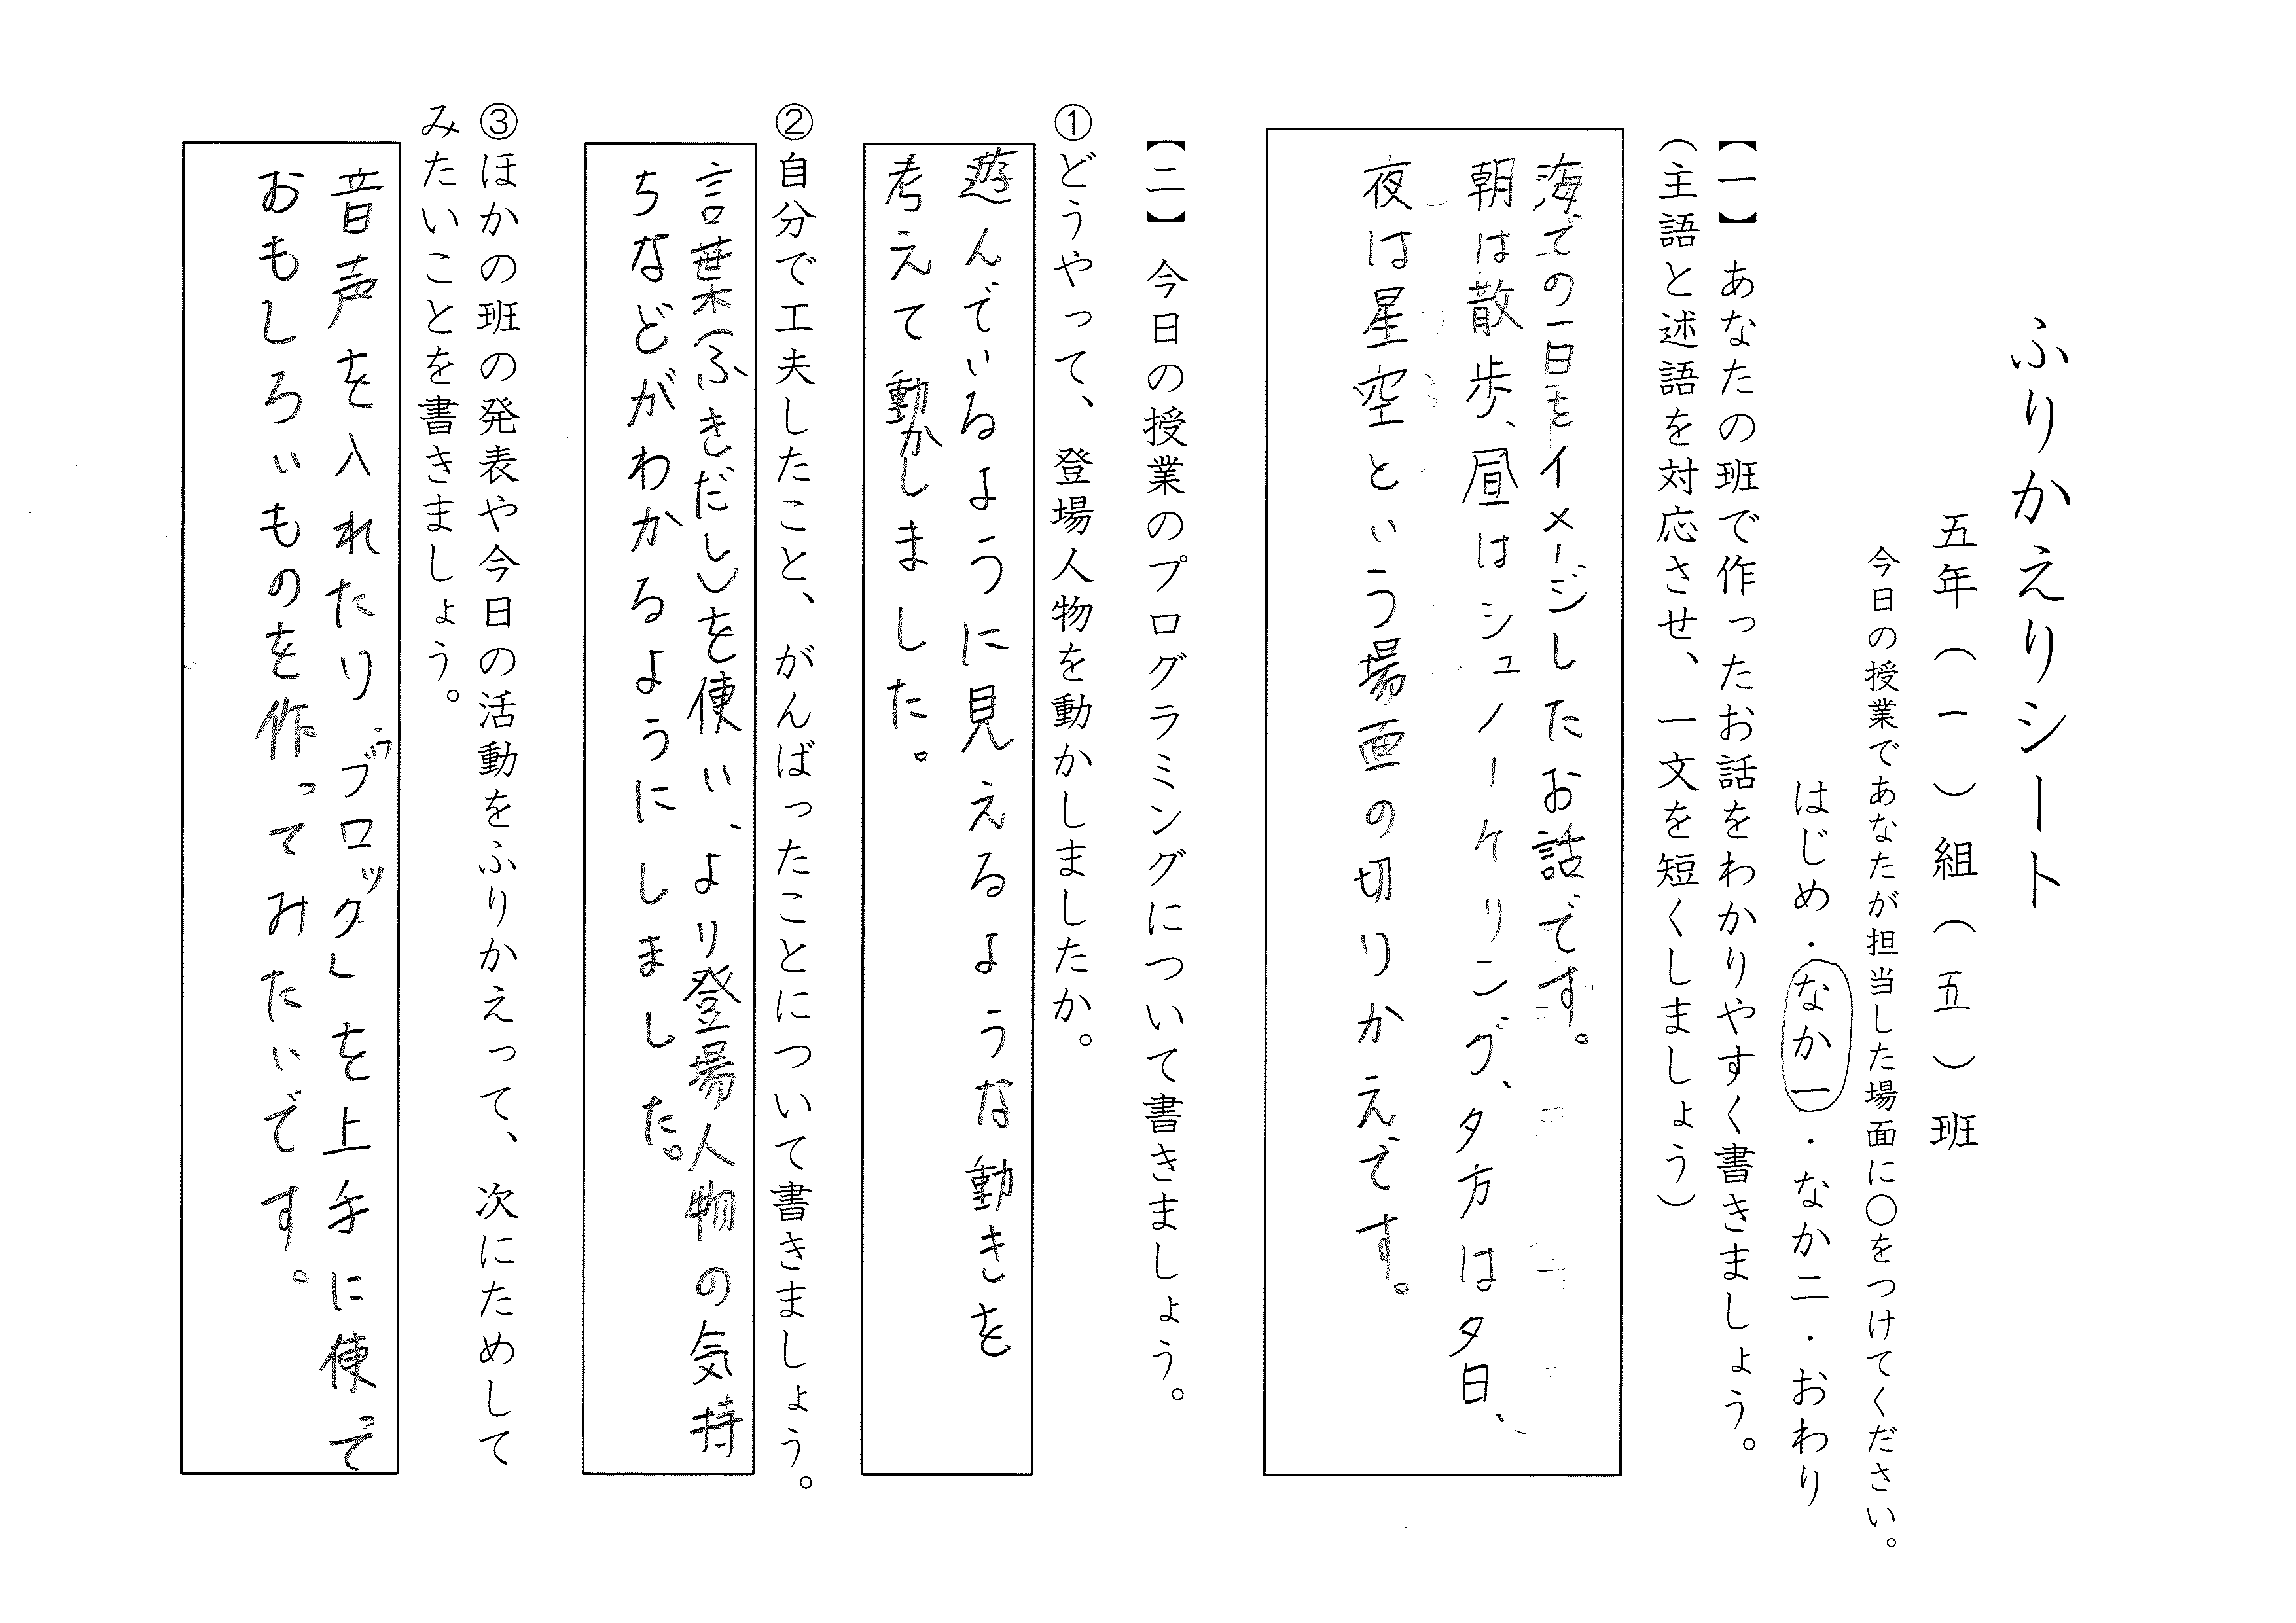 ふりかえりシート
五年（一）組（五）班
今日の授業であなたが担当した場面に○をつけてください。
はじめ・なか一・なか二・おわり
【一】あなたの班で作ったお話をわかりやすく書きましょう。
（主語と述語を対応させ、一文を短くしましょう）
海での一日をイメージしたお話です。
朝は散歩、昼はシュノーケリング、夕方は夕日、
夜は星空という場面の切りかえです。
【二】今日の授業のプログラミングについて書きましょう。
①どうやって、登場人物を動かしましたか。
遊んでいるように見えるような動きを
考えて動かしました。
②自分で工夫したこと、がんばったことについて書きましょう。
言葉（ふきだし）を使い、より登場人物の気持
ちなどがわかるようにしました。
③ほかの班の発表や今日の活動をふりかえって、次にためして
みたいことを書きましょう。
音声を入れたり、「ブロック」を上手に使って
おもしろいものを作ってみたいです。